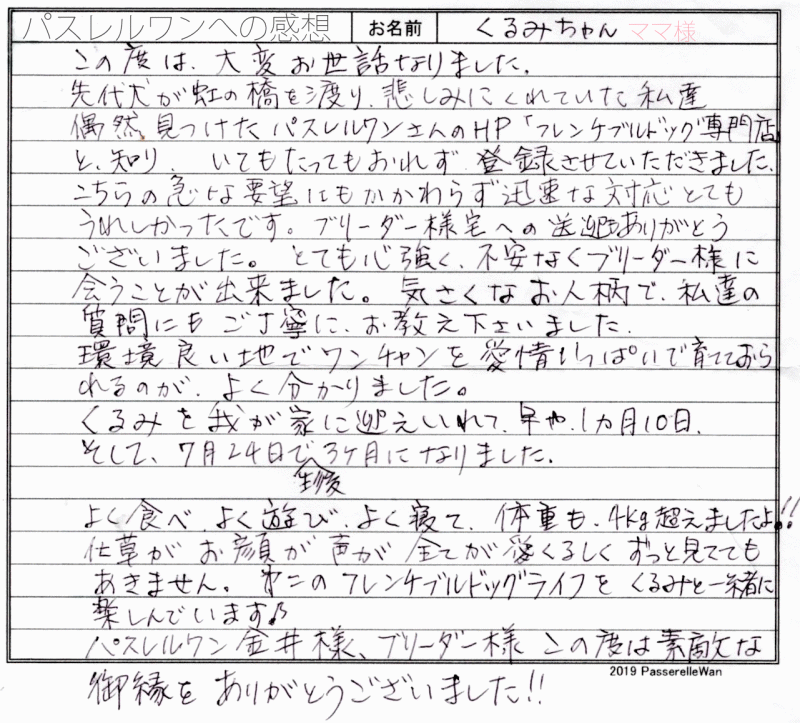 パスレルワンへの感想 お名前 くるみちゃん ママ様
この度は、大変お世話なりました。
先代犬が虹の橋を渡り、悲しみにくれていた私達
偶然、見つけたパスレルワンさんのHP「フレンチブルドッグ専門店」
と、知り、いてもたってもおれず、登録させていただきました。
こちらの急な要望にもかかわらず迅速な対応とても
うれしかったです。ブリーダー様宅への送迎ありがとう
ございました。とても心強く、不安なくブリーダー様に
会うことが出来ました。気さくなお人柄で、私達の
質問にもご丁寧に、お教え下さいました。
環境良い地でワンチャンを愛情いっぱいで育てておら
れるのが、よく分かりました。
くるみを我が家に迎えいれて、早や、1カ月10日、
そして、7月24日で生後3ケ月になりました。
よく食べ、よく遊び、よく寝て、体重も、4kg超えましたよ!!
仕草がお顔が声が全てが愛くるしくずっと見てても
あきません。第二のフレンチブルドッグライフをくるみと一緒に
楽しんでいます♪
パスレルワン金井様、ブリーダー様この度は素敵な
御縁をありがとうございました!!
2019 PasserelleWan